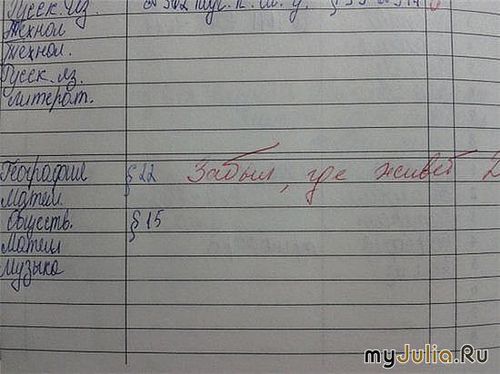 Русск. яз.
Технол
Технол.
Русск. яз.
Литерат.
География § 22 Забыл, где живет 2
Матем.
Обществ. § 15
Матем
Музыка
myJulia.Ru